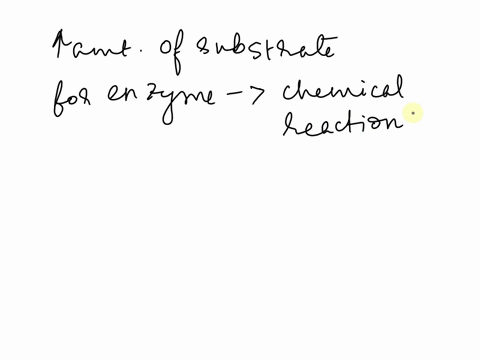 ↑ amt. of substrate
for enzyme -> chemical
reaction